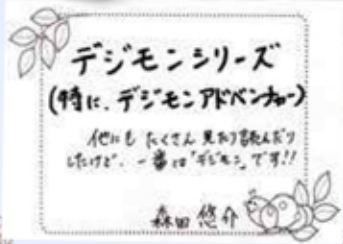 デジモンシリーズ
(特に、デジモンアドベンチャー)
他にも たくさん 見たり読んだり
したけど、一番は「デジモン」です!!
森田 悠介